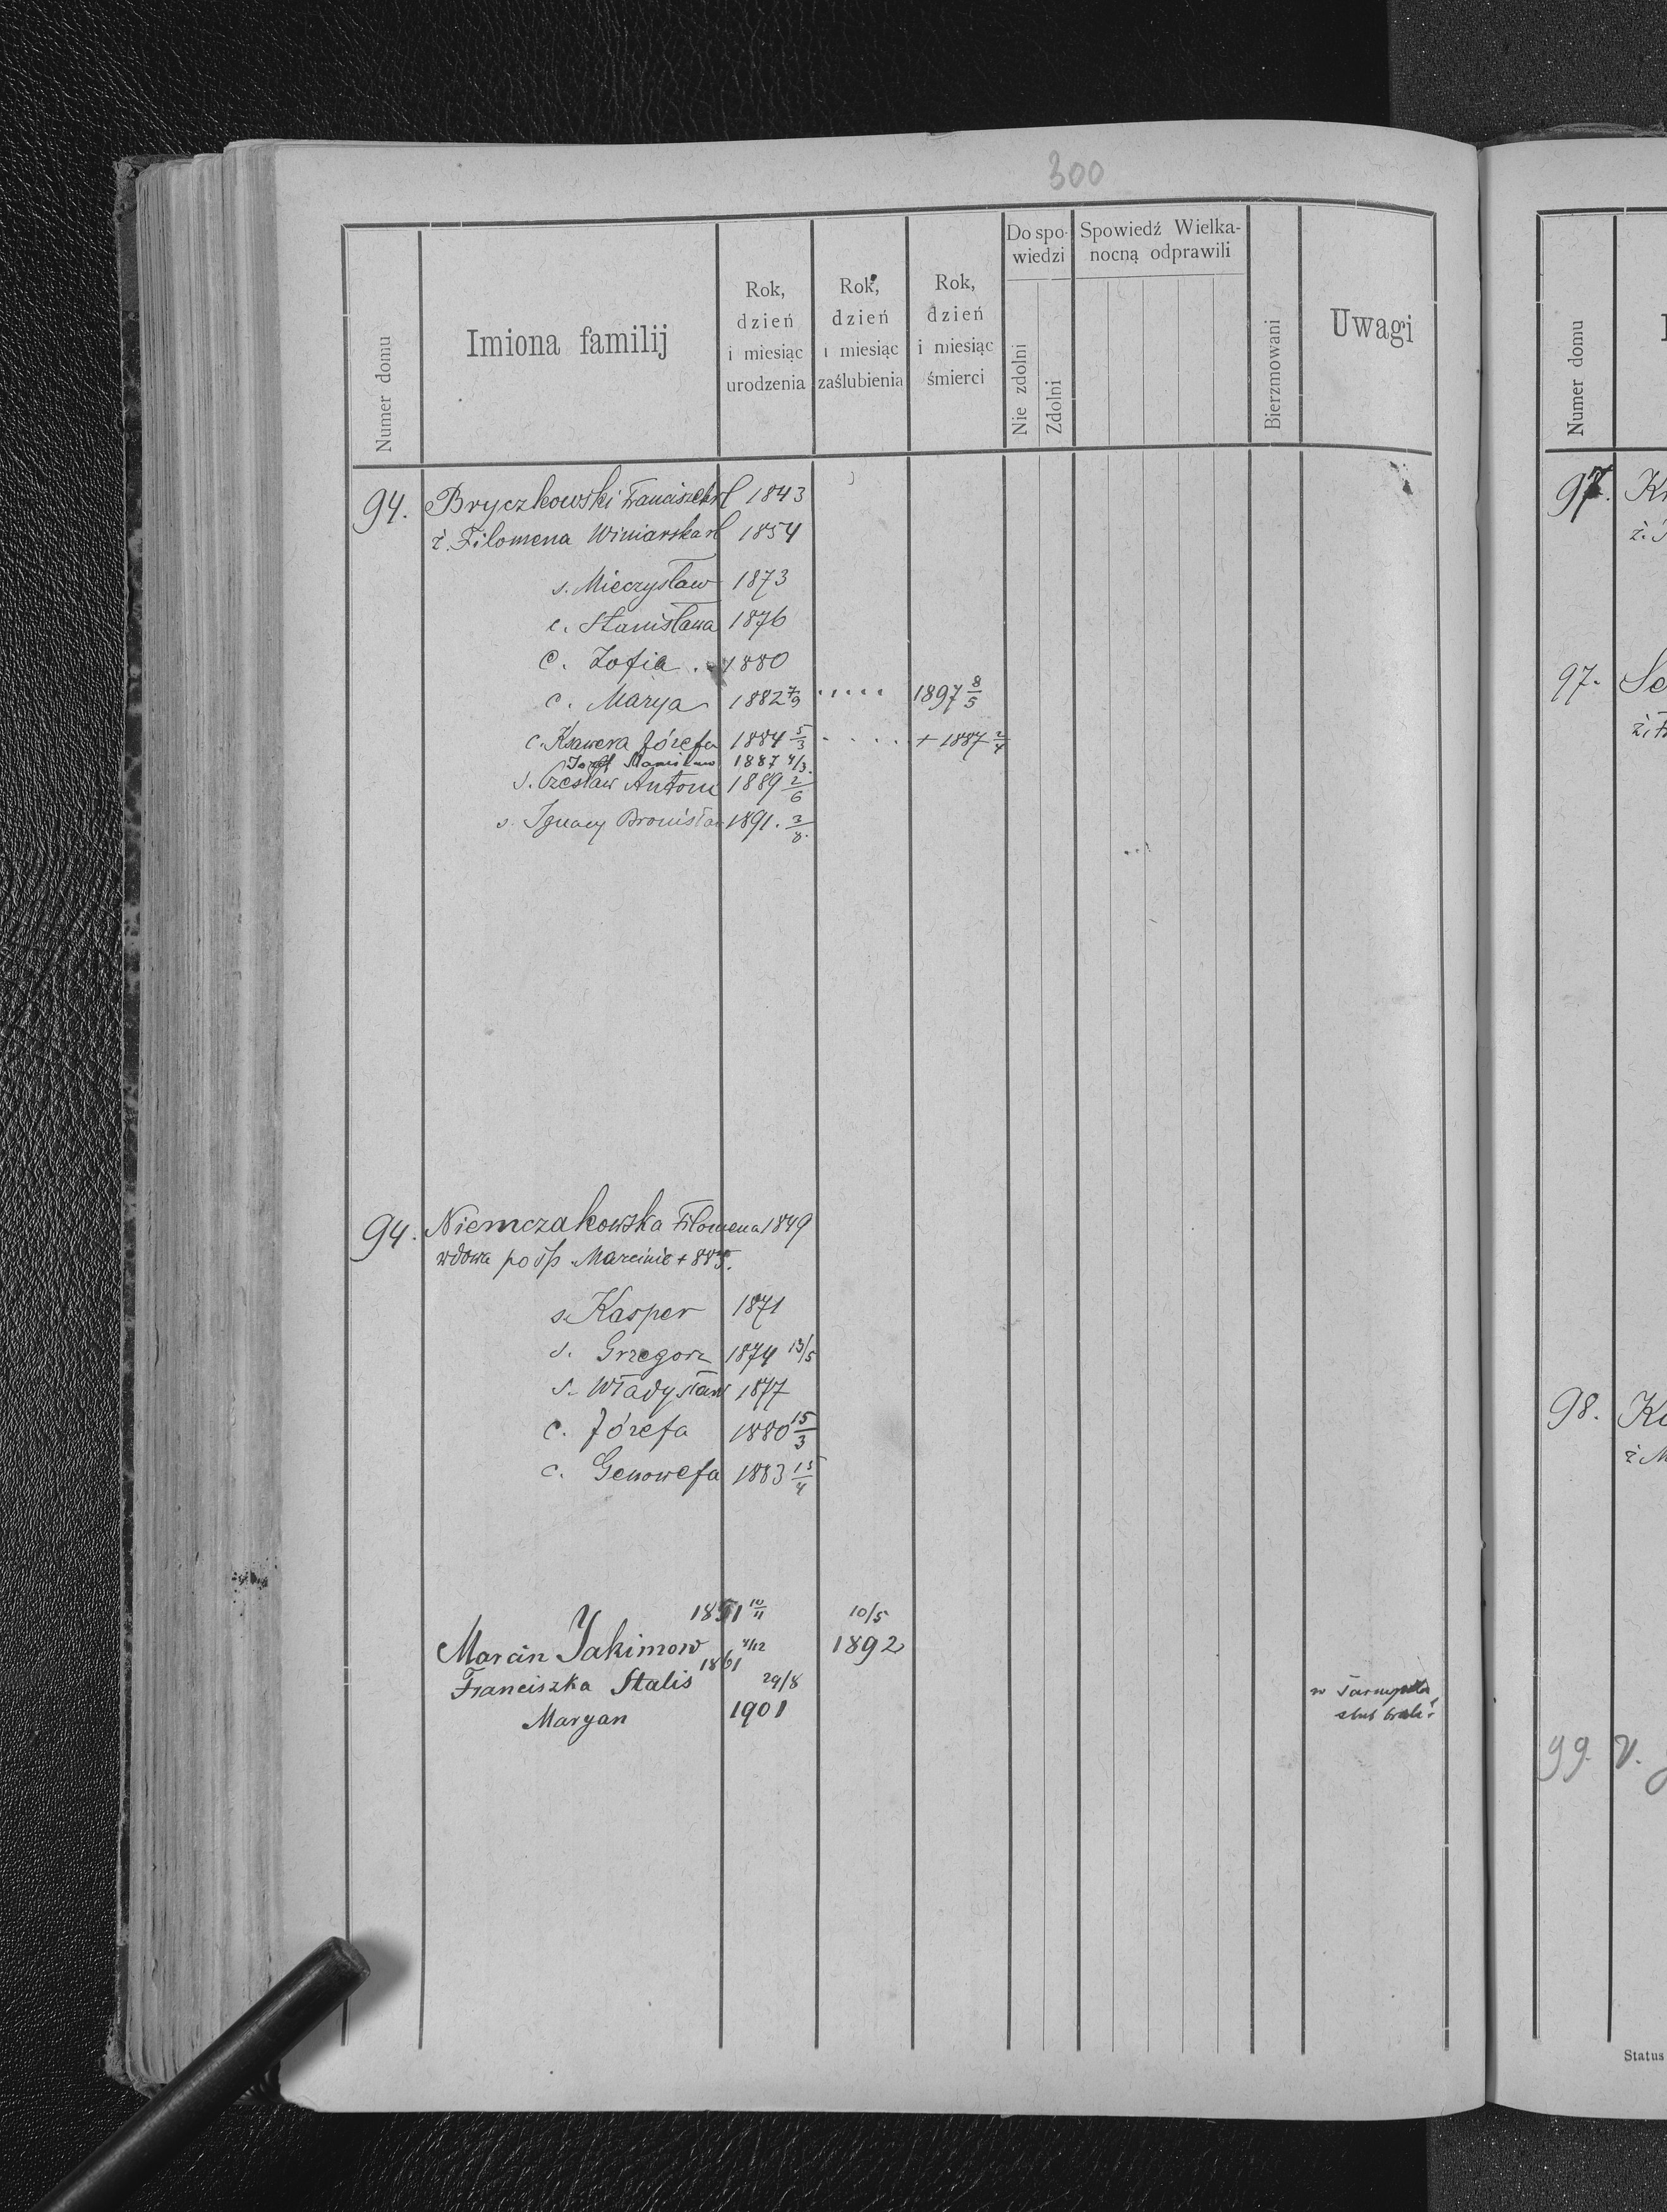 300
Numer domu
Imiona familij
Rok, dzień i miesiąc urodzenia
Rok, dzień i miesiąc zaślubienia
Rok, dzień i miesiąc śmierci
Do spowiedzi
Nie zdolni
Zdolni
Spowiedź Wielkanocną odprawili
Bierzmowani
Uwagi
94. Bryczkowski Franciszek rl 1843
ż. Filomena Winiarska rl 1854
s. Mieczysław 1873
c. Stanisława 1876
C. Zofia . 1880
c. Marya 1882 7/9 ..... 1897 8/5
c. Ksawera Józefa 1884 5/3 ..... + 1887 2/4
Józef Stanisław 1887 4/3.
S. Czesław Antoni 1889 2/6
s. Ignacy Bronisław 1891. 2/8.
94. Niemczakowska Filomena 1849
wdowa po śp Marcinie + 885.
s. Kasper 1871
s. Grzegorz 1874 13/5
s. Władysław 1877
c. Józefa 1880 15/3
c. Genowefa 1883 15/4
1851 10/11 10/5
Marcin Jakimow 4/12 1892
1861
Franciszka Stalis 29/8
Maryan 1901
w
ślub
Numer domu
97.
97.
98.
99.
Status